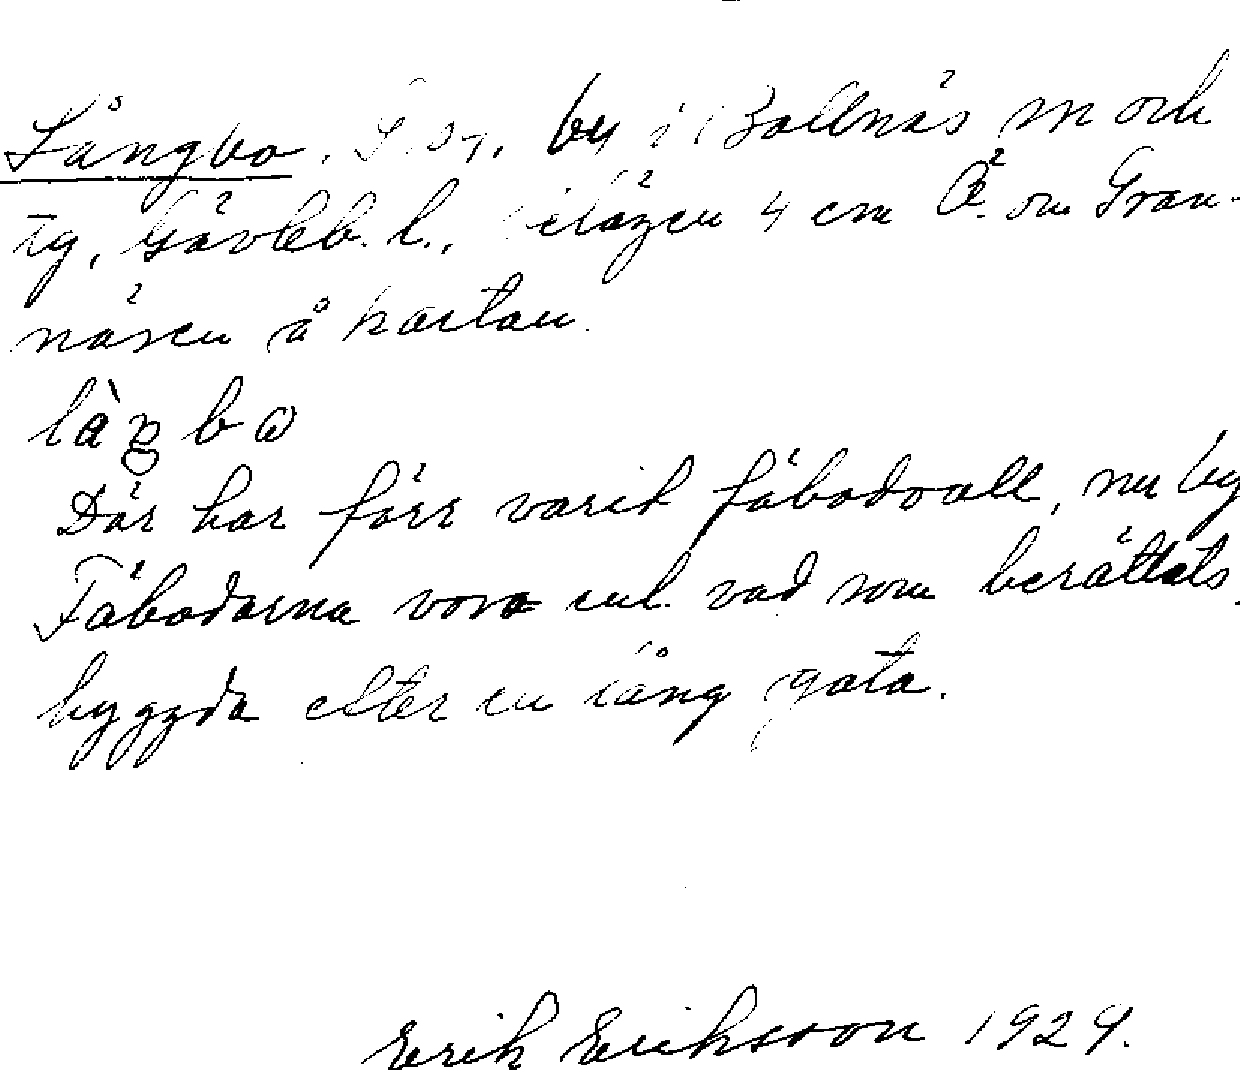 Långbo. by i Bollnäs sn och
tg, Gävleb. l., belägen 4 cm Ö. om Gran-
näsen å kartan.
Där har förr varit fäbodvall, nu by
Fäbodarna voro enl. vad som berättats
byggda efter en lång gata.
Erik Eriksson 1929.